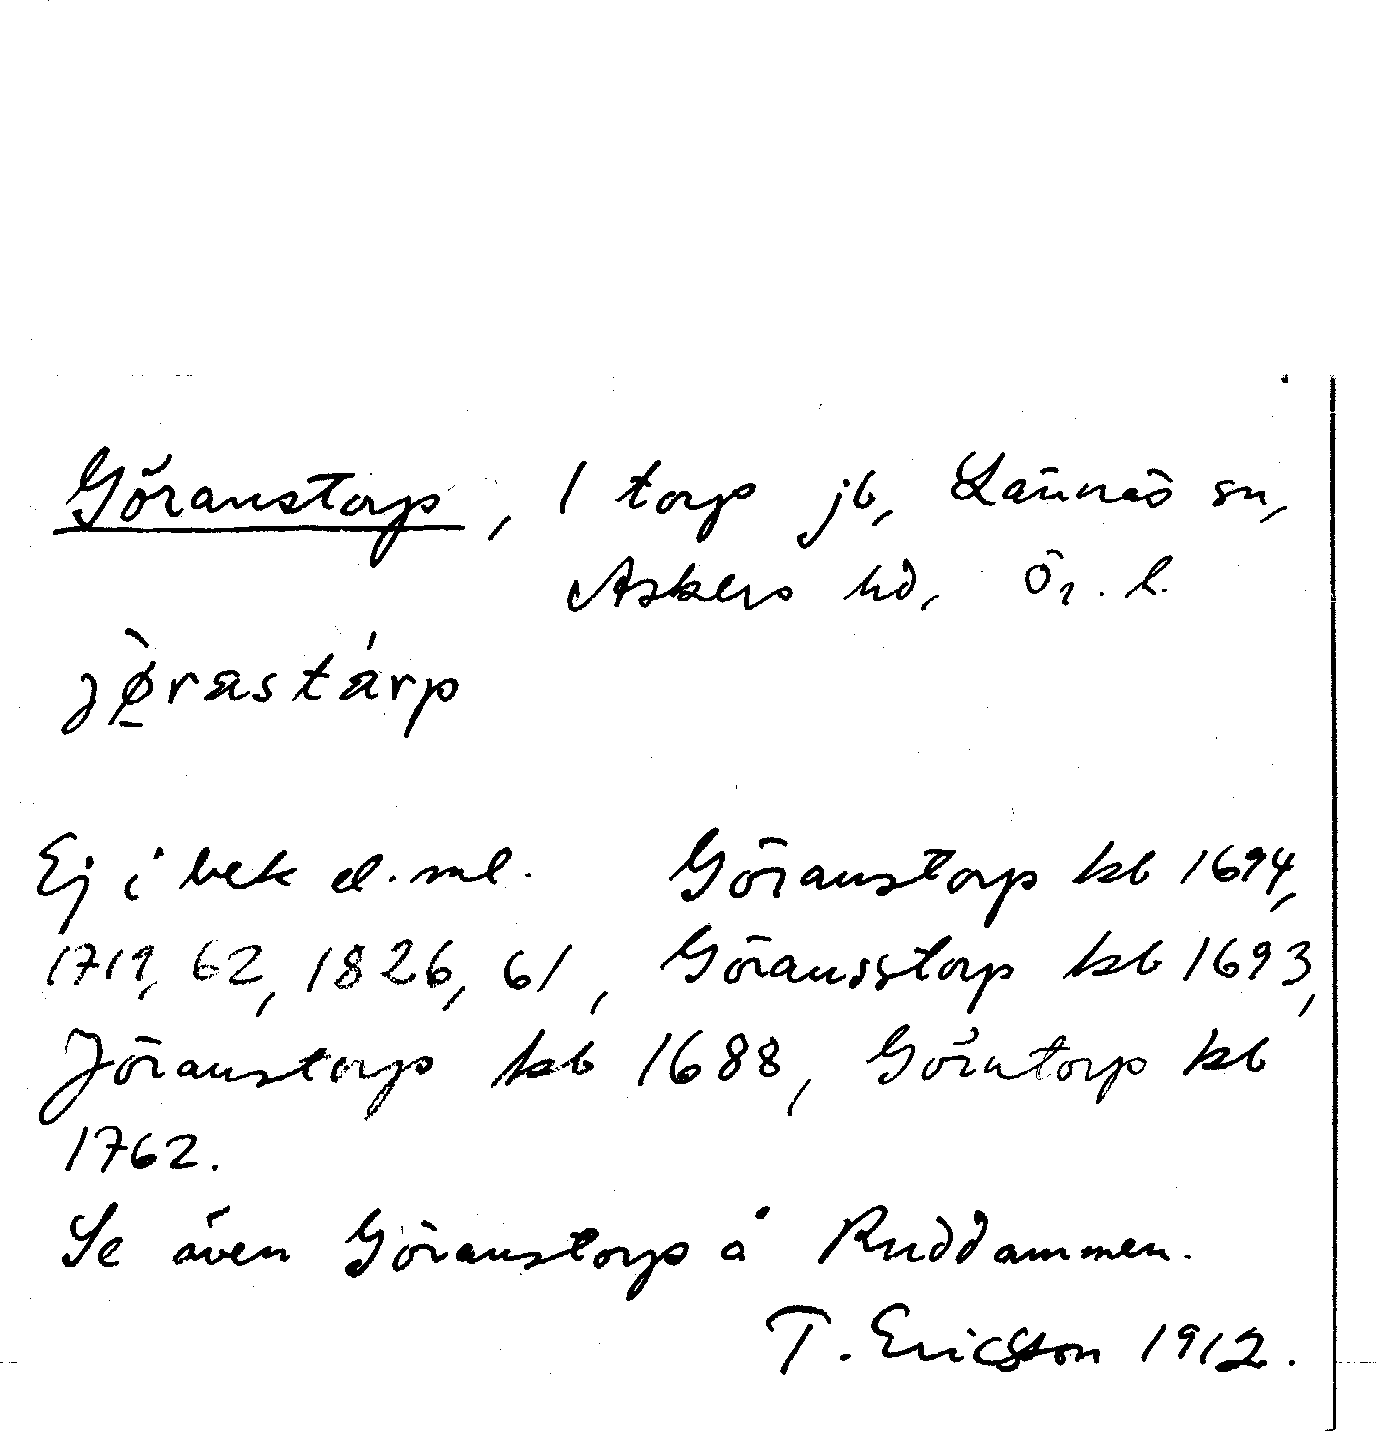 Göranstorp, 1 torp jb, Lännäs sn,
Askers hd, Ör. l.
jø̀rastárp
Ej i bek d. ml. Göranstorp kb 1694,
1719, 62, 1826, 61, Göransstorp kb 1693,
Jöranstorp kb 1688, Görntorp kb
1762.
Se även Göranstorp å Ruddammen.
T. Ericsson 1912.